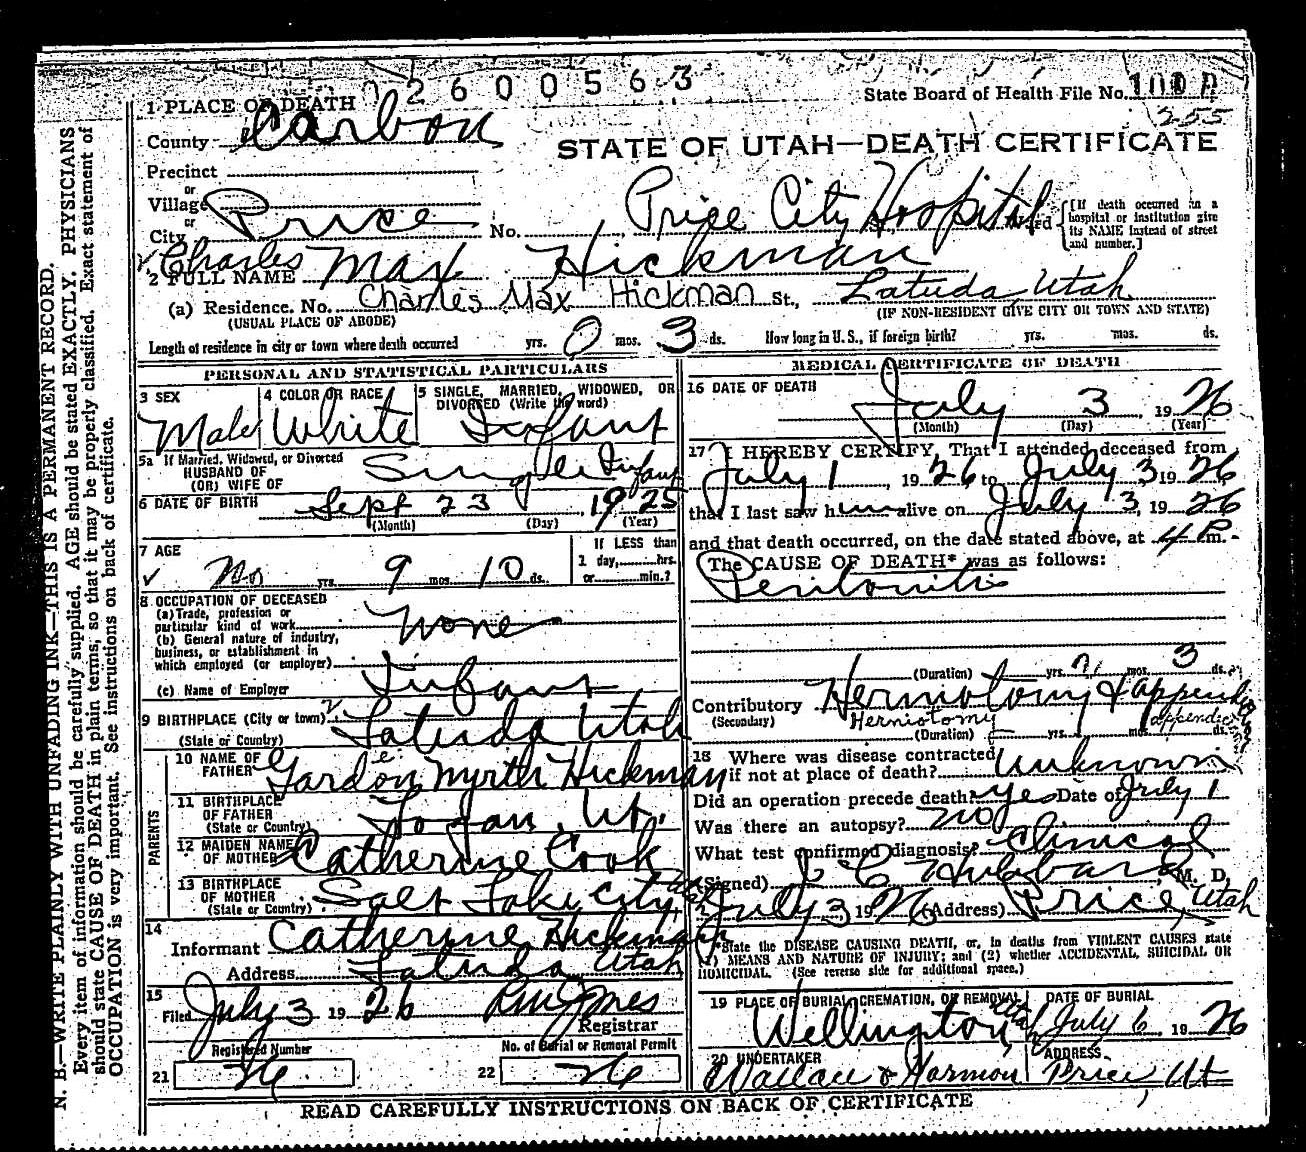 02600563
State Board of Health File No.
255
1 PLACE OF DEATH
County Carbon
STATE OF UTAH—DEATH CERTIFICATE
Precinct
or
Village
or
City Price No. Price City Hospital Ward
[If death occurred in a hospital or institution give its NAME instead of street and number.]
2 FULL NAME Charles Max Hickman
(a) Residence. No. Charles Max Hickman St., Latuda, Utah
(USUAL PLACE OF ABODE) (IF NON-RESIDENT GIVE CITY OR TOWN AND STATE)
Length of residence in city or town where death occurred yrs. 0 mos. 3 ds. How long in U.S., if foreign birth? yrs. mos. ds.
PERSONAL AND STATISTICAL PARTICULARS
3 SEX
Male
4 COLOR OR RACE
White
5 SINGLE, MARRIED, WIDOWED, OR DIVORCED (Write the word)
Infant
5a If Married, Widowed, or Divorced
HUSBAND OF
(OR) WIFE OF
Single Infant
6 DATE OF BIRTH Sept 23, 1925
(Month) (Day) (Year)
7 AGE
No yrs. 9 mos. 10 ds.
If LESS than
1 day, hrs.
or min.?
8 OCCUPATION OF DECEASED
(a) Trade, profession or
particular kind of work None
(b) General nature of industry,
business, or establishment in
which employed (or employer)
(c) Name of Employer Infant
9 BIRTHPLACE (City or town) Latuda Utah
(State or Country)
PARENTS
10 NAME OF
FATHER Gordon Myrth Hickman
11 BIRTHPLACE
OF FATHER
(State or Country) Logan, Ut.
12 MAIDEN NAME
OF MOTHER Catherine Cook
13 BIRTHPLACE
OF MOTHER
(State or Country) Salt Lake City,
14
Informant Catherine Hickman
Address Latuda Utah
15
Filed July 3 1926
Registrar
Registered Number
No. of Burial or Removal Permit
21 26
22 26
MEDICAL CERTIFICATE OF DEATH
16 DATE OF DEATH
July 3, 1926
(Month) (Day) (Year)
17 I HEREBY CERTIFY, That I attended deceased from
July 1, 1926, to July 3 1926
that I last saw him alive on July 3, 1926
and that death occurred, on the date stated above, at 4 P m.
The CAUSE OF DEATH* was as follows:
Peritonitis
(Duration) yrs. mos. 3 ds.
Contributory Herniotomy &
(Secondary) Herniotomy
(Duration) yrs. mos. ds.
18 Where was disease contracted
if not at place of death? Unknown
Did an operation precede death? Yes Date of July 1
Was there an autopsy? no
What test confirmed diagnosis? Clinical
(Signed) J C Hubbard, M. D.
July 3 1926 (Address) Price, Utah
*State the DISEASE CAUSING DEATH, or, in deaths from VIOLENT CAUSES state
(1) MEANS AND NATURE OF INJURY; and (2) whether ACCIDENTAL, SUICIDAL OR
HOMICIDAL. (See reverse side for additional space.)
19 PLACE OF BURIAL, CREMATION, OR REMOVAL
Wellington, Utah
DATE OF BURIAL
July 6, 1926
20 UNDERTAKER
Wallace & Harmon
ADDRESS
Price, Ut
READ CAREFULLY INSTRUCTIONS ON BACK OF CERTIFICATE
N. B.—WRITE PLAINLY WITH UNFADING INK—THIS IS A PERMANENT RECORD.
Every item of information should be carefully supplied. AGE should be stated EXACTLY. PHYSICIANS
should state CAUSE OF DEATH in plain terms, so that it may be properly classified. Exact statement of
OCCUPATION is very important. See instructions on back of certificate.